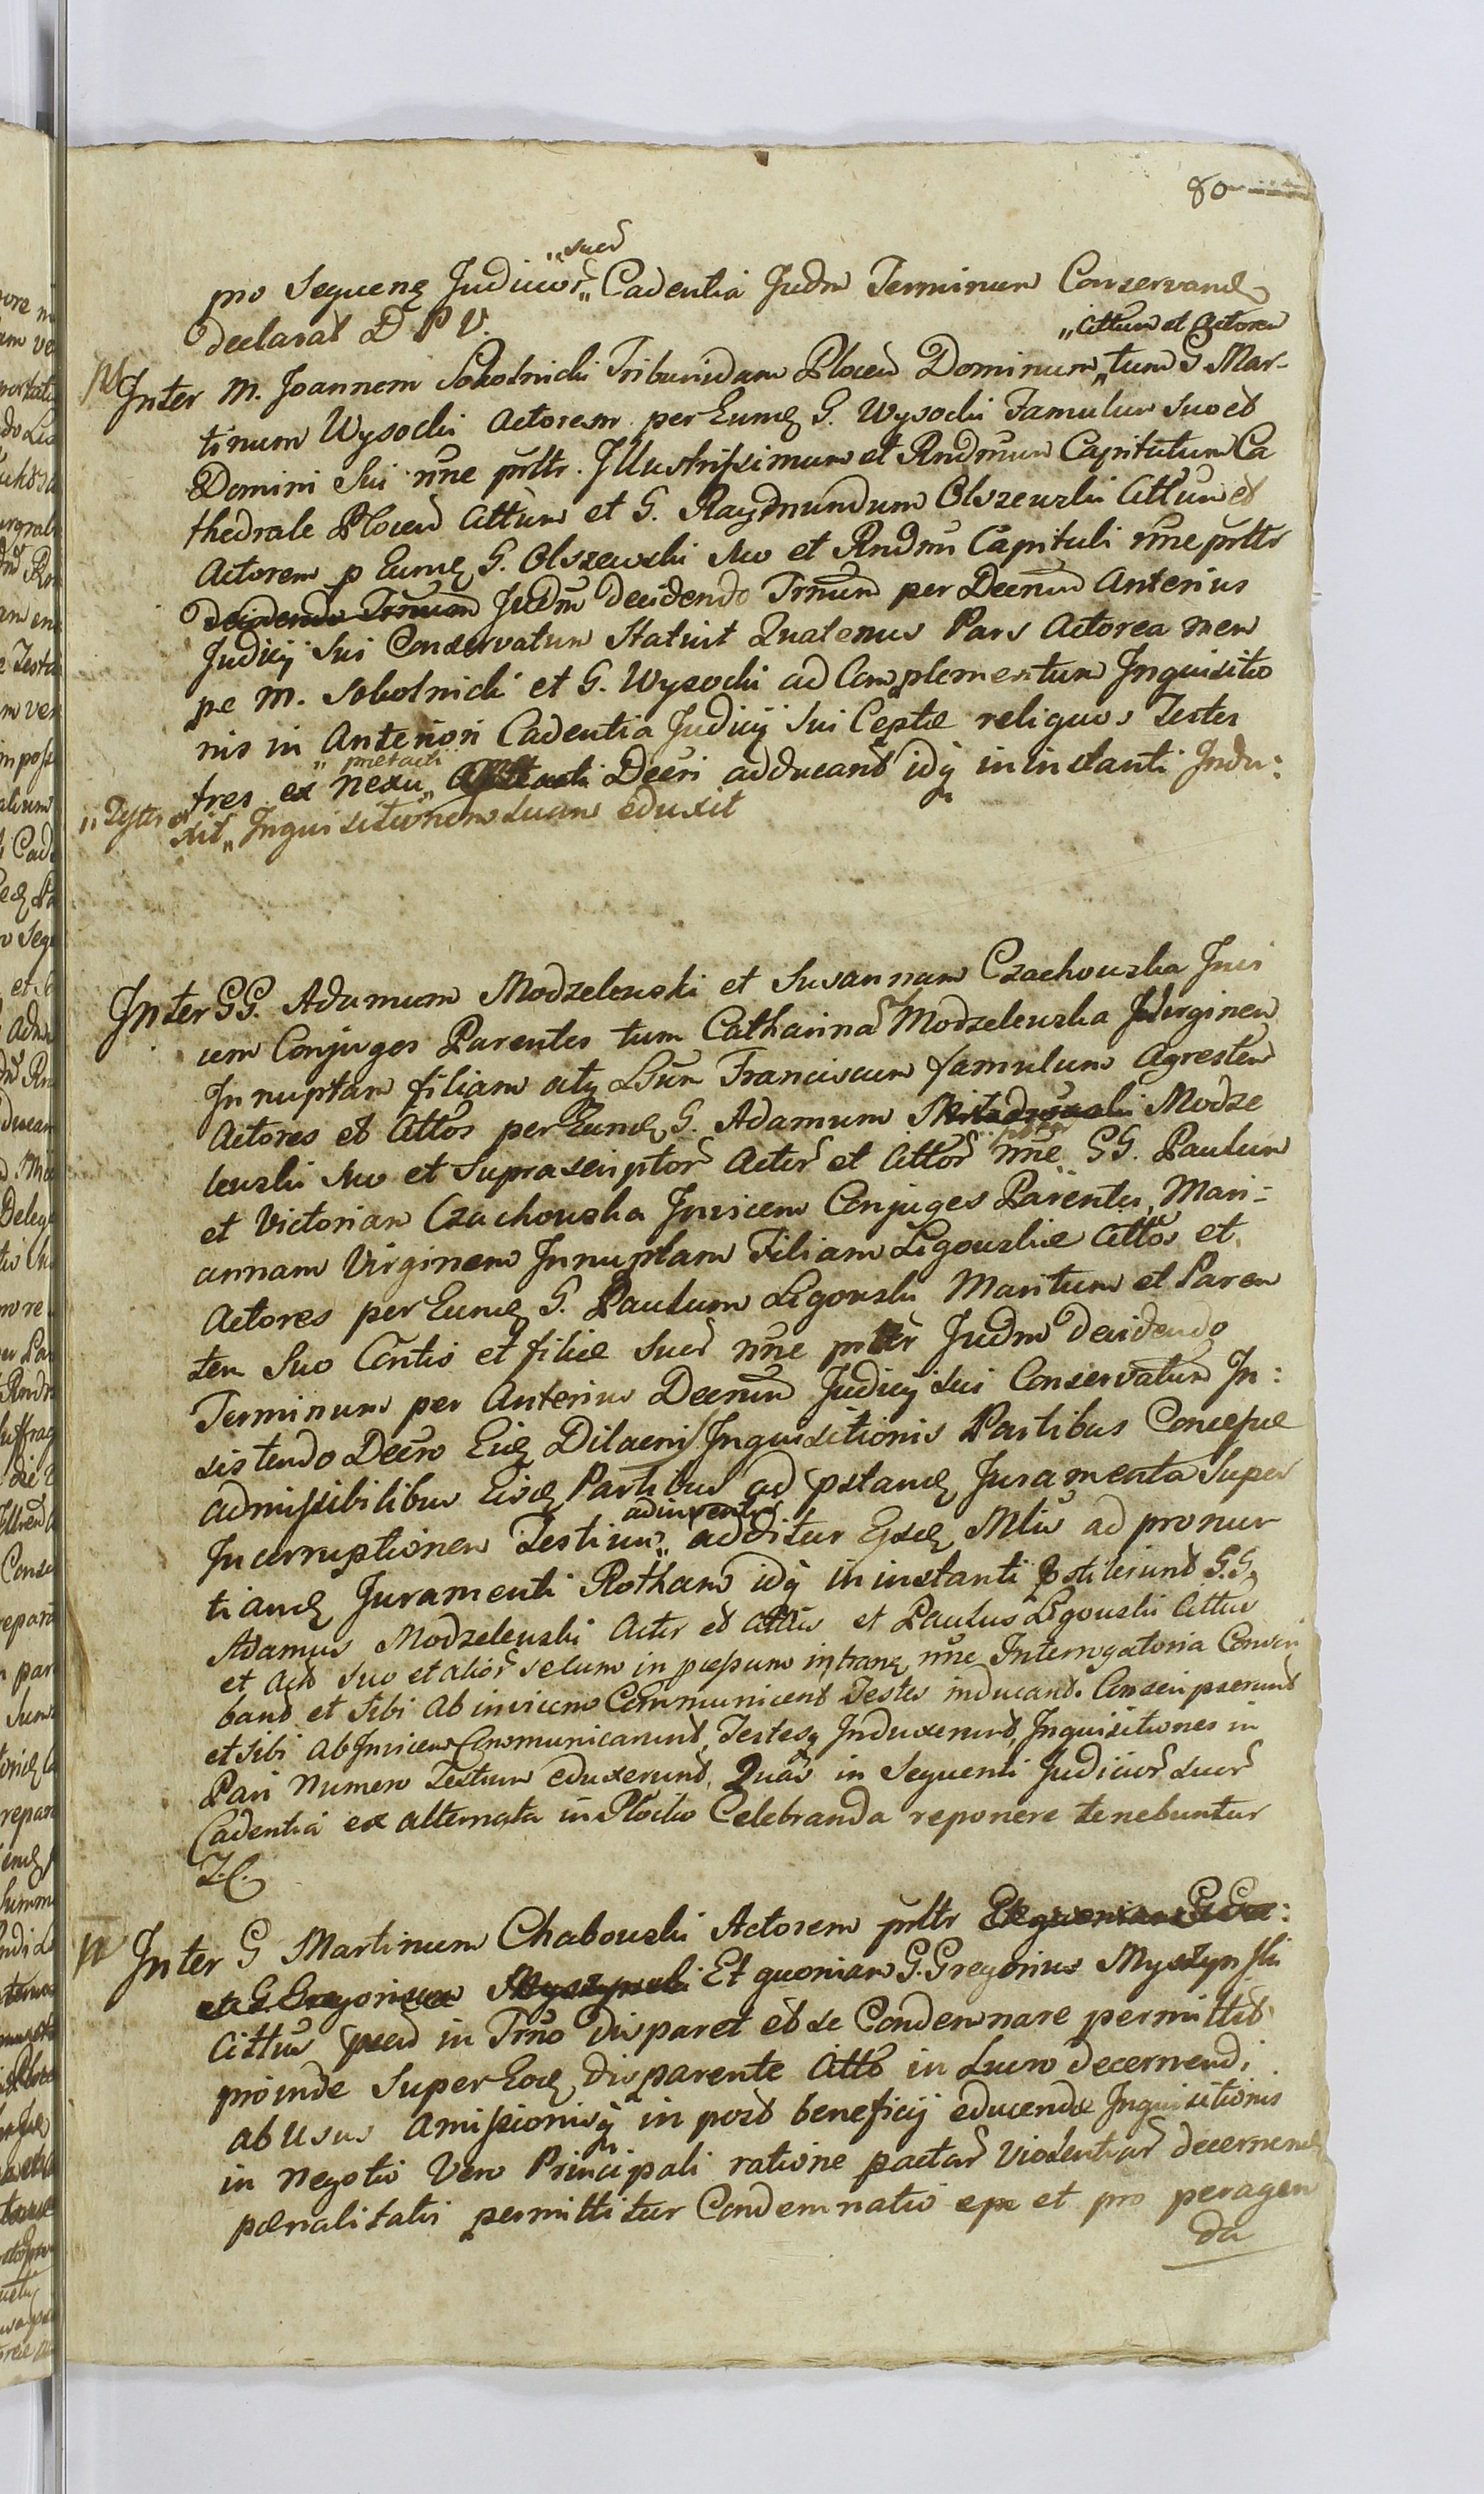 80
pro Sequenę Judicior „suor̃ Cadentia Judm Terminum Conservandę
declarat D P V.
Inter M. Joannem Sokolnicki Tribunidam Plocen Dominum „Cittum et Actorem tum G Mar-
tinum Wysocki Actorem per Eundę G. Wysocki Famulum suo et
Domini sui nñe prltr. Illustrissimum et Rndmum Capitulum Ca
thedrale Plocen Cittum et G. Raymundum Olszewski Cittum et
Actorem p Eundę G. Olszewski suo et Rndmi Capituli nñe prltr
Decidendo Trnum Judm decidendo Trnum per Decrum Anterius
Judicij sui Conservatum Statuit Quatenus Pars Actorea nem
pe M. Sokolnicki et G. Wysocki ad Complementum Inquisitio
nis in Anteriori Cadentia Judicij sui Ceptæ reliquos Testes
tres ex nexu „prætacti Decri adducant idq in instanti Indu:
xit „Testes et Inquisitionem suam eduxit
Inter GG. Adamum Modzelewski et Susannam Czachowska Invi
cem Conjuges Parentes tum Catharina Modzelewska Virginem
Innuptam filiam atq Lbum Franciscum famulum Agrestem
Actores et Cittos per Eundę G. Adamum Modze
lewski suo et Suprascriptor̃ Actor̃ et Cittor̃ nñe prltr GG. Paulum
et Victoriam Czachowska Invicem Conjuges Parentes, Mari-
annam Virginem Innuptam Filiam Ligowskie Cittos et
Actores per Eundę G. Paulum Ligowski Maritum et Paren
tem Suo Contis et filiæ suæ nñe prltr Judm decidendo
Terminum per Anterius Decrum Judicij sui Conservatum In:
sistendo Decro Eidę Dilaonis Inquisitionis Partibus Concessæ
admissibilibus Eisdę Partibus ad pstandę Juramenta Super
Incorruptionem Testium „adinventor additur Eisdę Mlus ad pronun
tiandę Juramenti Rotham idq in instanti pstiterunt G.G.
Adamus Modzelewski Actor et Cittus et Paulus Ligowski Cittus
et Act suo et alior̃ secum in præsum intranę nñe Interrogatoria Conscri
bant et Sibi ab invicem Communicent Testes inducant. Conscripserunt
et sibi ab Invicem Communicarunt, Testesq Induxerunt, Inquisitiones in
Pari numero Testium eduxerunt, Quas in Sequenti Judicior̃ suor̃
Cadentia ex alternata in Plocko Celebranda reponere tenebuntur
Inter G Martinum Chabowski Actorem prltr Et quoniam G Gre:
et G Gregorium Myszynski Et quoniam G. Gregorius Myszynski
Cittus in Trno disparet et se Condemnare permittit
proinde Super Eodę disparente Citto in Lucro decernendi
ab Usus amissionisq in post beneficij educendæ Inquisitionis
in negotio Vero Principali ratione pactar̃ Violentiar̃ decernendę
pænalitatis permittitur Condemnatio et pro peragen
da